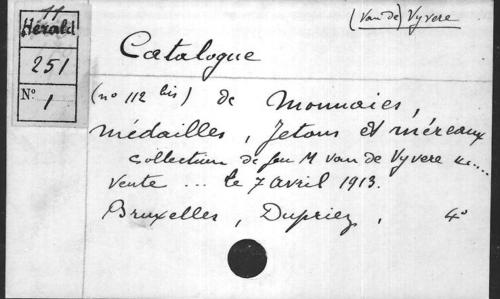 11
Hérald
251
N° 1
(van de) Vyvere
Catalogue
(n° 112 bis) de Monnaies,
médailles, Jetons et méreaux
collection de feu M van de Vyvere
vente ... le 7 avril 1913.
Bruxelles, Dupriez, 4°